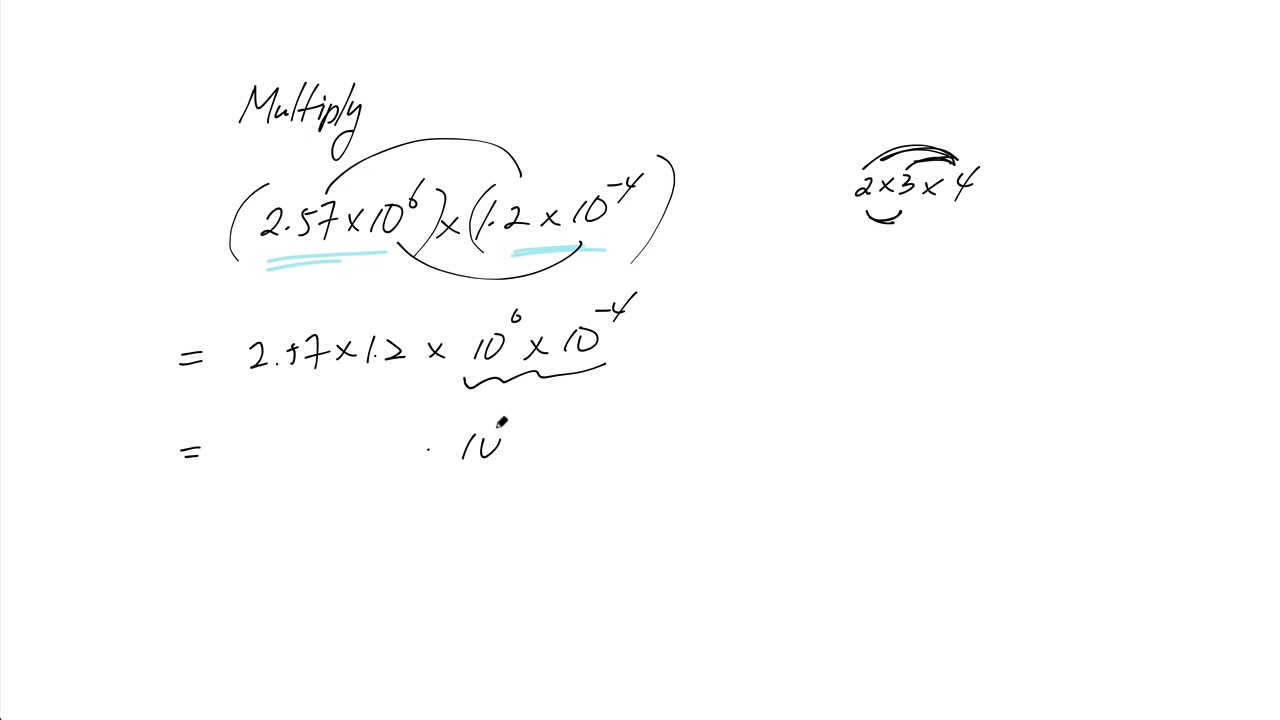 Multiply
(2.57 × 10⁶) × (1.2 × 10⁻⁴)
2 × 3 × 4
= 2.57 × 1.2 × 10⁶ × 10⁻⁴
= · 10